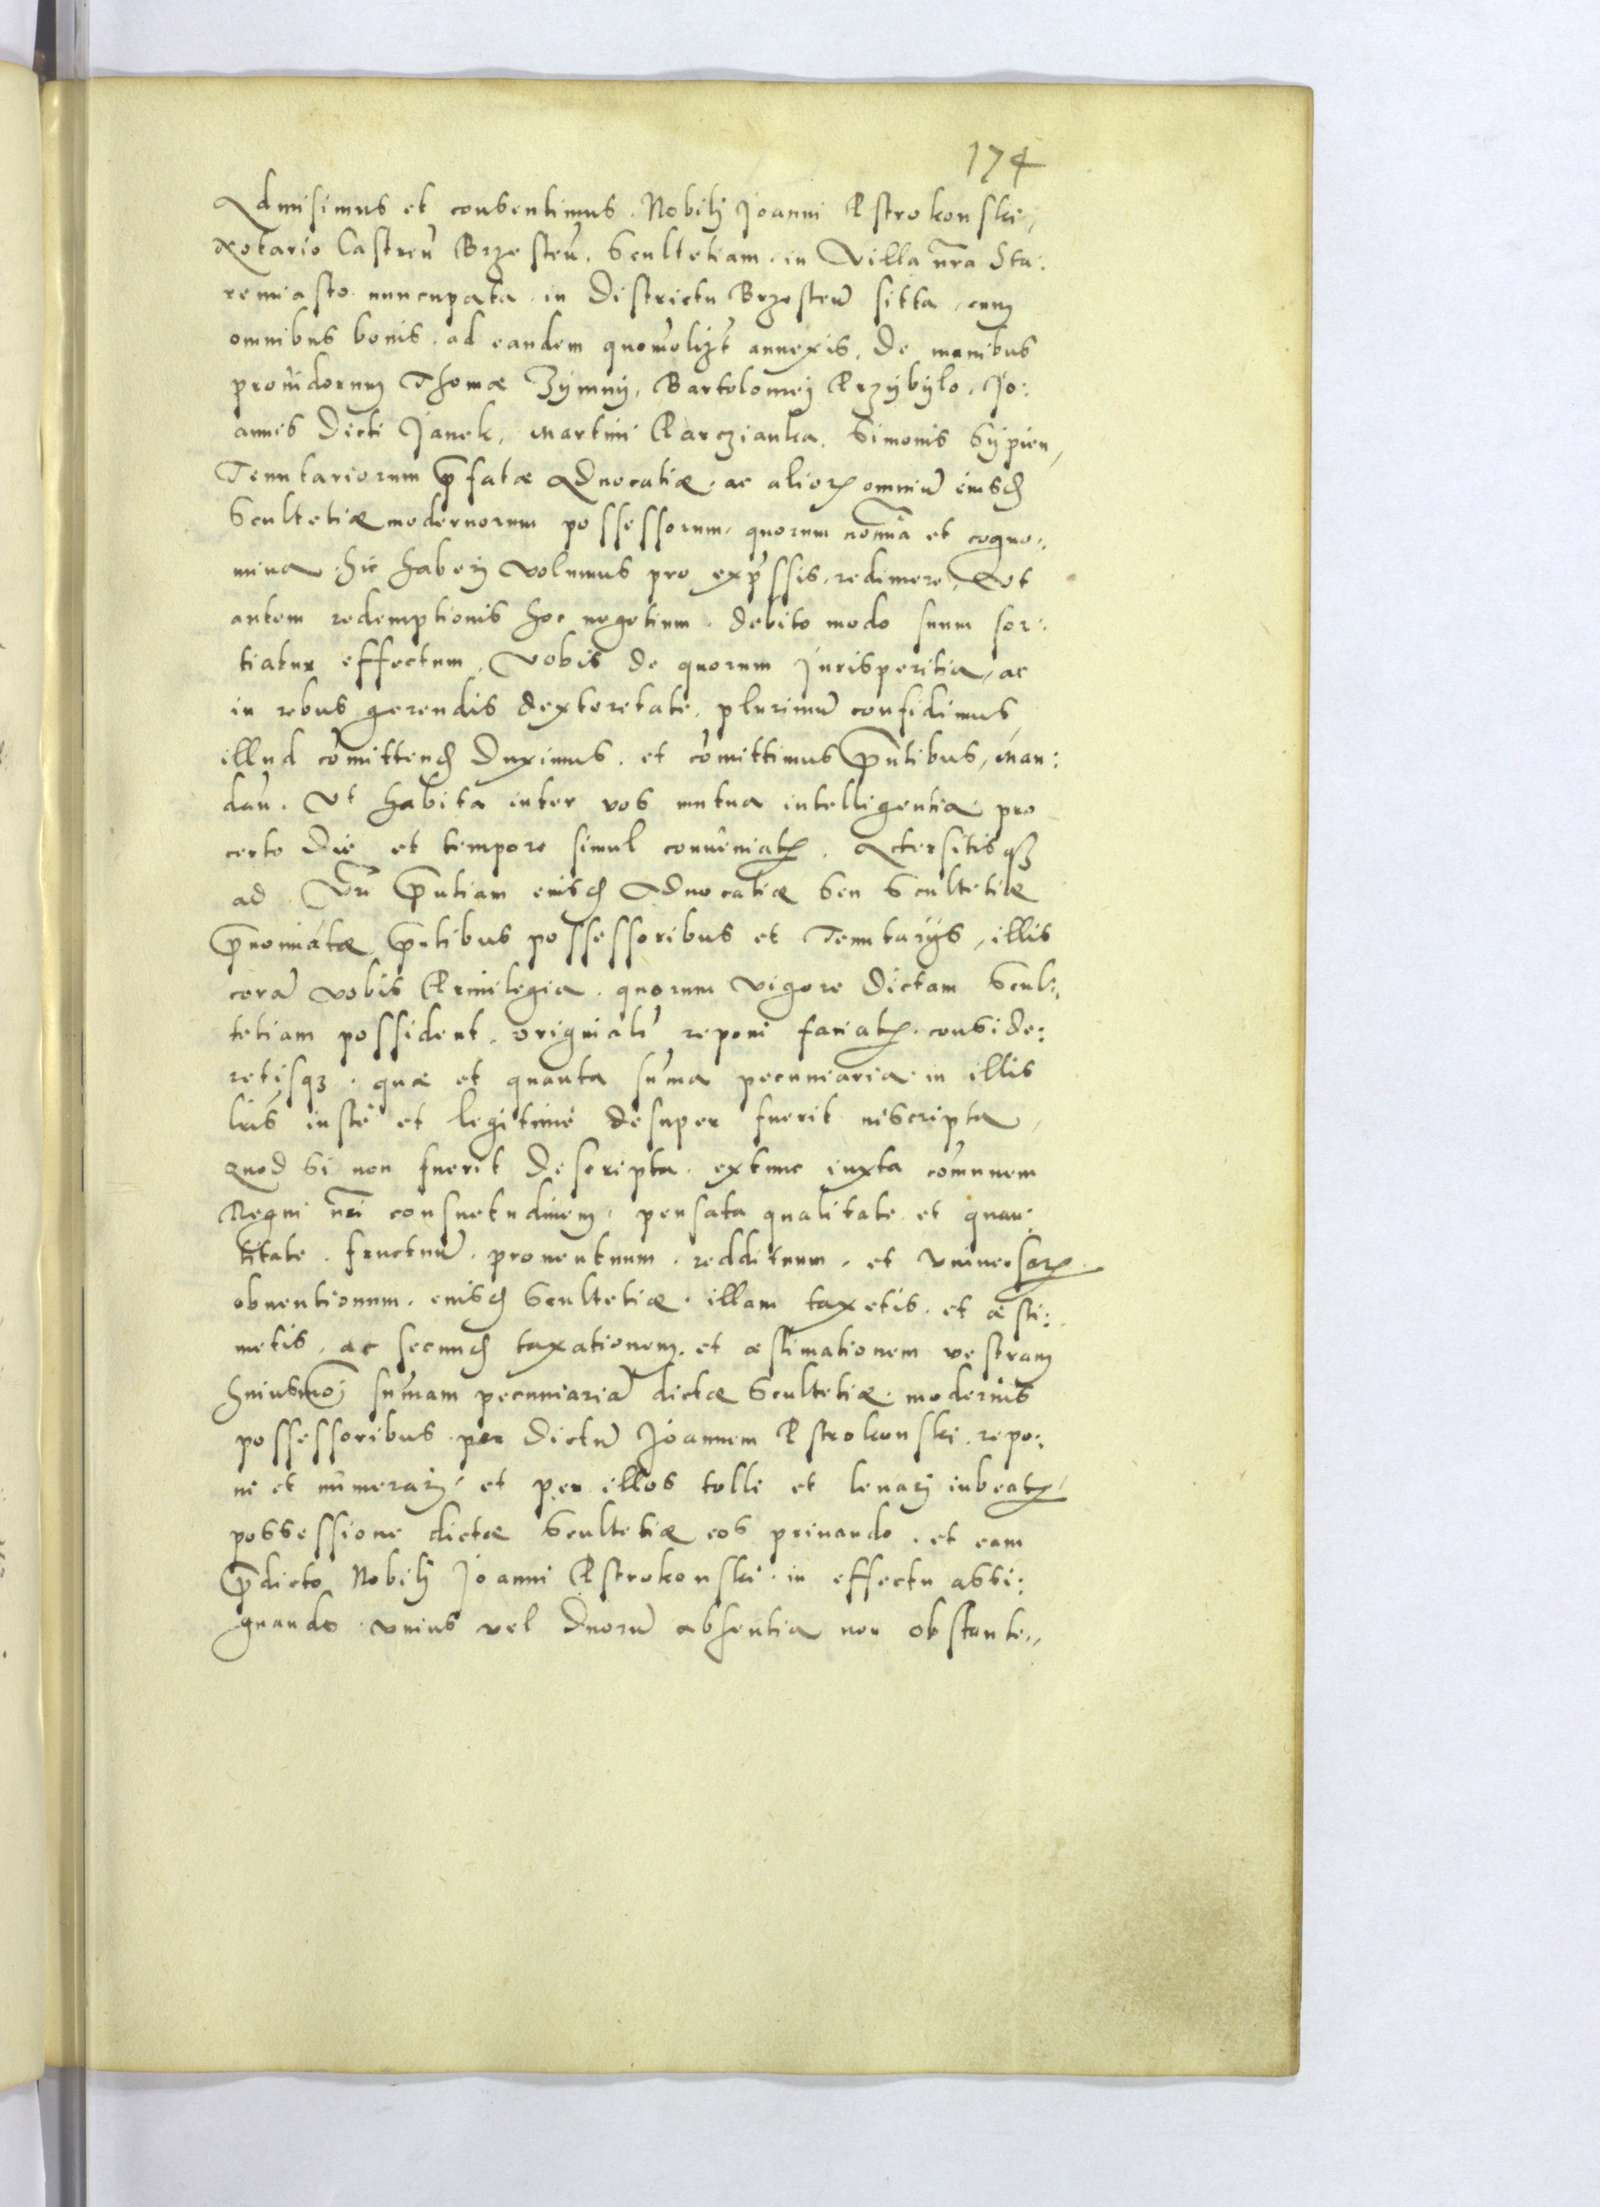 174
Admisimus et consentimus. Nobilj Joanni Pstrokonski,
Notario Castreñ Brzesteñ. Scultetiam in Villa nr̃a Sta:
remiasto nuncupata in Districtu Brzesteñ sitta, cum
omnibus bonis ad eandem quomõlizt annexis, de manibus
prouidorum Thomæ Zymny, Bartolomej Przybylo, Jo:
annis Dicti Janek, Martini Parczianka, Simonis Sypien,
Tenutariorum p̃fatæ Aduocatiæ, ac alior omniũ eiusd
Scultetiæ modernorum possessorum, quorum nomĩa et cogno:
mina hic haberj volumus pro exp̃ssis, redimere, Vt
autem redemptionis hoc negotium debito modo suum sor:
tiatur effectum, Vobis de quorum Jurisperitia, ac
in rebus gerendis dexteretate plurimũ confidimus
illud cõmittend Duximus, et cõmittimus p̃ntibus, Man:
dañ. Vt habita inter vos mutua intelligentia pro
certo Die et tempore simul conueniat. Acersitisq3
ad Vr̃ p̃ntiam eiusd Aduocatiæ Seu Scultetiæ
p̃nomiatæ p̃ntibus possessoribus et Tenutarijs, illis
corã vobis Priuilegia quorum vigore dictam Scul:
tetiam possident, originalũ reponi faciat, conside:
retisq3 quæ et quanta sũma pecuniaria in illis
lrĩs iuste et legitime desuper fuerit inscripta,
Quod Si non fuerit descripta extunc iuxta cõmunem
Regni nr̃i consuetudinem, pensata qualitate et quan:
titate fructuũ, prouentuum, reddituum, et vniuersor
obuentionum, eiusd Scultetiæ illam taxetis et æsti:
metis, ac secund taxationem et æstimationem vestram
huiusmõj sũmam pecuniariã dictæ Scultetiæ modernis
possessoribus per Dictũ Joannem Pstrokonski repo:
ni et numerarj, et per illos tolli et leuarj iubeat,
possessione dictæ Scultetiæ eos priuando, et eam
p̃dicto Nobilj Joanni Pstrokonski in effectu assi:
gnando vnius vel Duorũ absentia non obstante,,